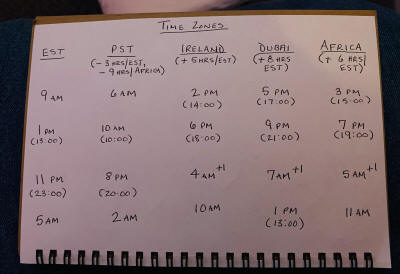 TIME ZONES
EST PST IRELAND DUBAI AFRICA
(- 3 HRS/EST, (+ 5 HRS/EST) (+ 8 HRS (+ 6 HRS/
- 9 HRS/AFRICA) EST) EST)
9 AM 6 AM 2 PM 5 PM 3 PM
(14:00) (17:00) (15:00)
1 PM 10 AM 6 PM 9 PM 7 PM
(13:00) (10:00) (18:00) (21:00) (19:00)
11 PM 8 PM 4 AM +1 7 AM +1 5 AM +1
(23:00) (20:00)
5 AM 2 AM 10 AM 1 PM 11 AM
(13:00)